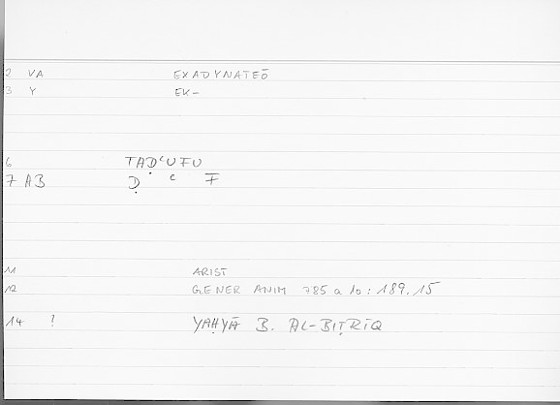 2 VA EXADYNATEŌ
3 Y EK-
6 TAḌʿUFU
7 AB Ḍ ʿ F
11 ARIST
12 GENER ANIM 785 a 10 : 189.15
14 ! YAḤYĀ B. AL-BIṬRĪQ